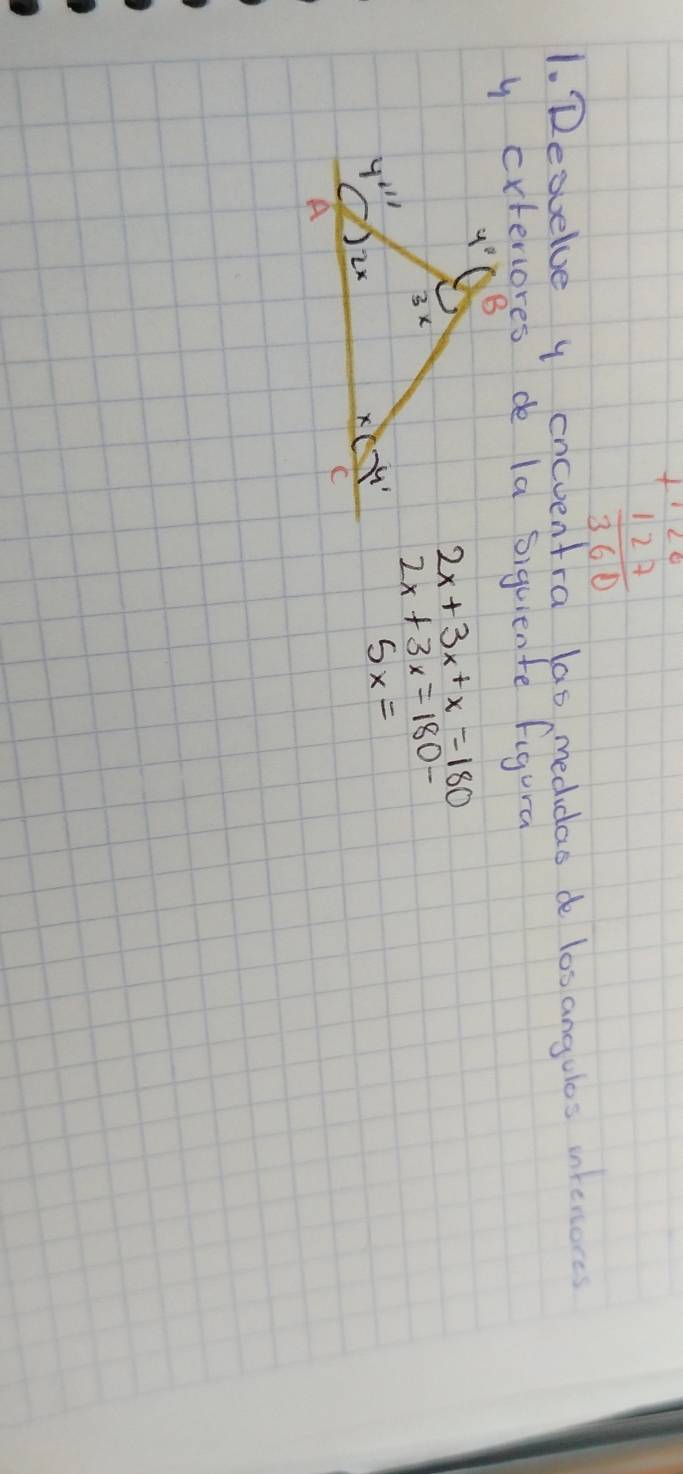 +126
127
360
1. Desuelve y encuentra las medidas de los angulos interiores
y exteriores de la siguiente figura
y" B
3x
y''' 2x
A
x y'
C
2x + 3x + x = 180
2x + 3x = 180 -
5x =